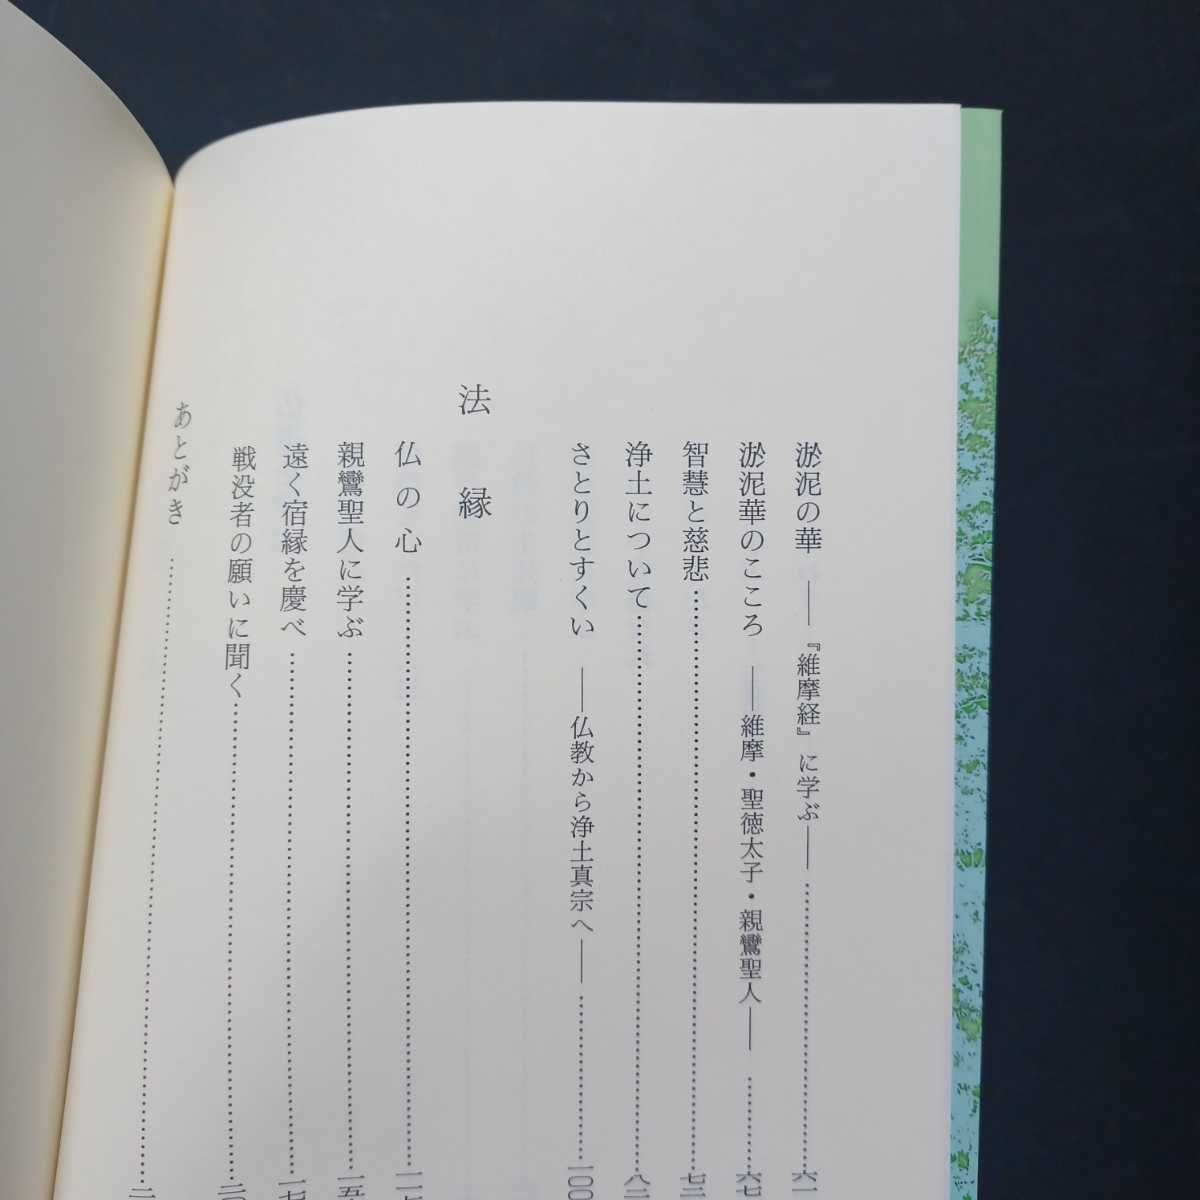 淤泥の華 ――『維摩経』に学ぶ―― ………… 六一
淤泥華のこころ ――維摩・聖徳太子・親鸞聖人―― ………… 六七
智慧と慈悲 ………… 七二
浄土について ………… 八二
さとりとすくい ――仏教から浄土真宗へ―― ………… 一〇〇
法縁
仏の心 ………… 一一七
親鸞聖人に学ぶ ………… 一五
遠く宿縁を慶べ ………… 一七
戦没者の願いに聞く ………… 二〇
あとがき ………… 二